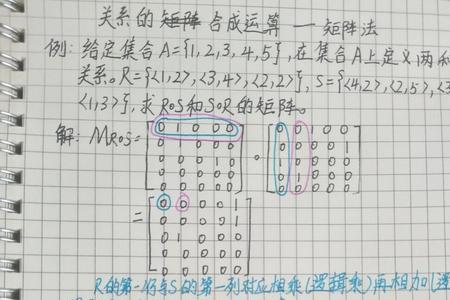 关系的矩阵合成运算——矩阵法
例:给定集合A={1,2,3,4,5},在集合A上定义两种
关系。R={<1,2>,<3,4>,<2,2>},S={<4,2>,<2,5>,<3
<1,3>},求R∘S和S∘R的矩阵。
解:MR∘S=[0 1 0 0 0 ∘ [0 0 1 0 0
0 1 0 0 0 0 0 0 0 1
0 0 0 1 0
0 0 0 0 0 0 1 0 0 0
0 0 0 0 0] 0 0 0 0 0]
=[0 0 0 0 1
0 0 0 0 1
0 1 0 0 0
0 0 0 0 0
0 0 0 0 0]
R的第一行与S的第一列对应相乘(逻辑乘)再相加(逻